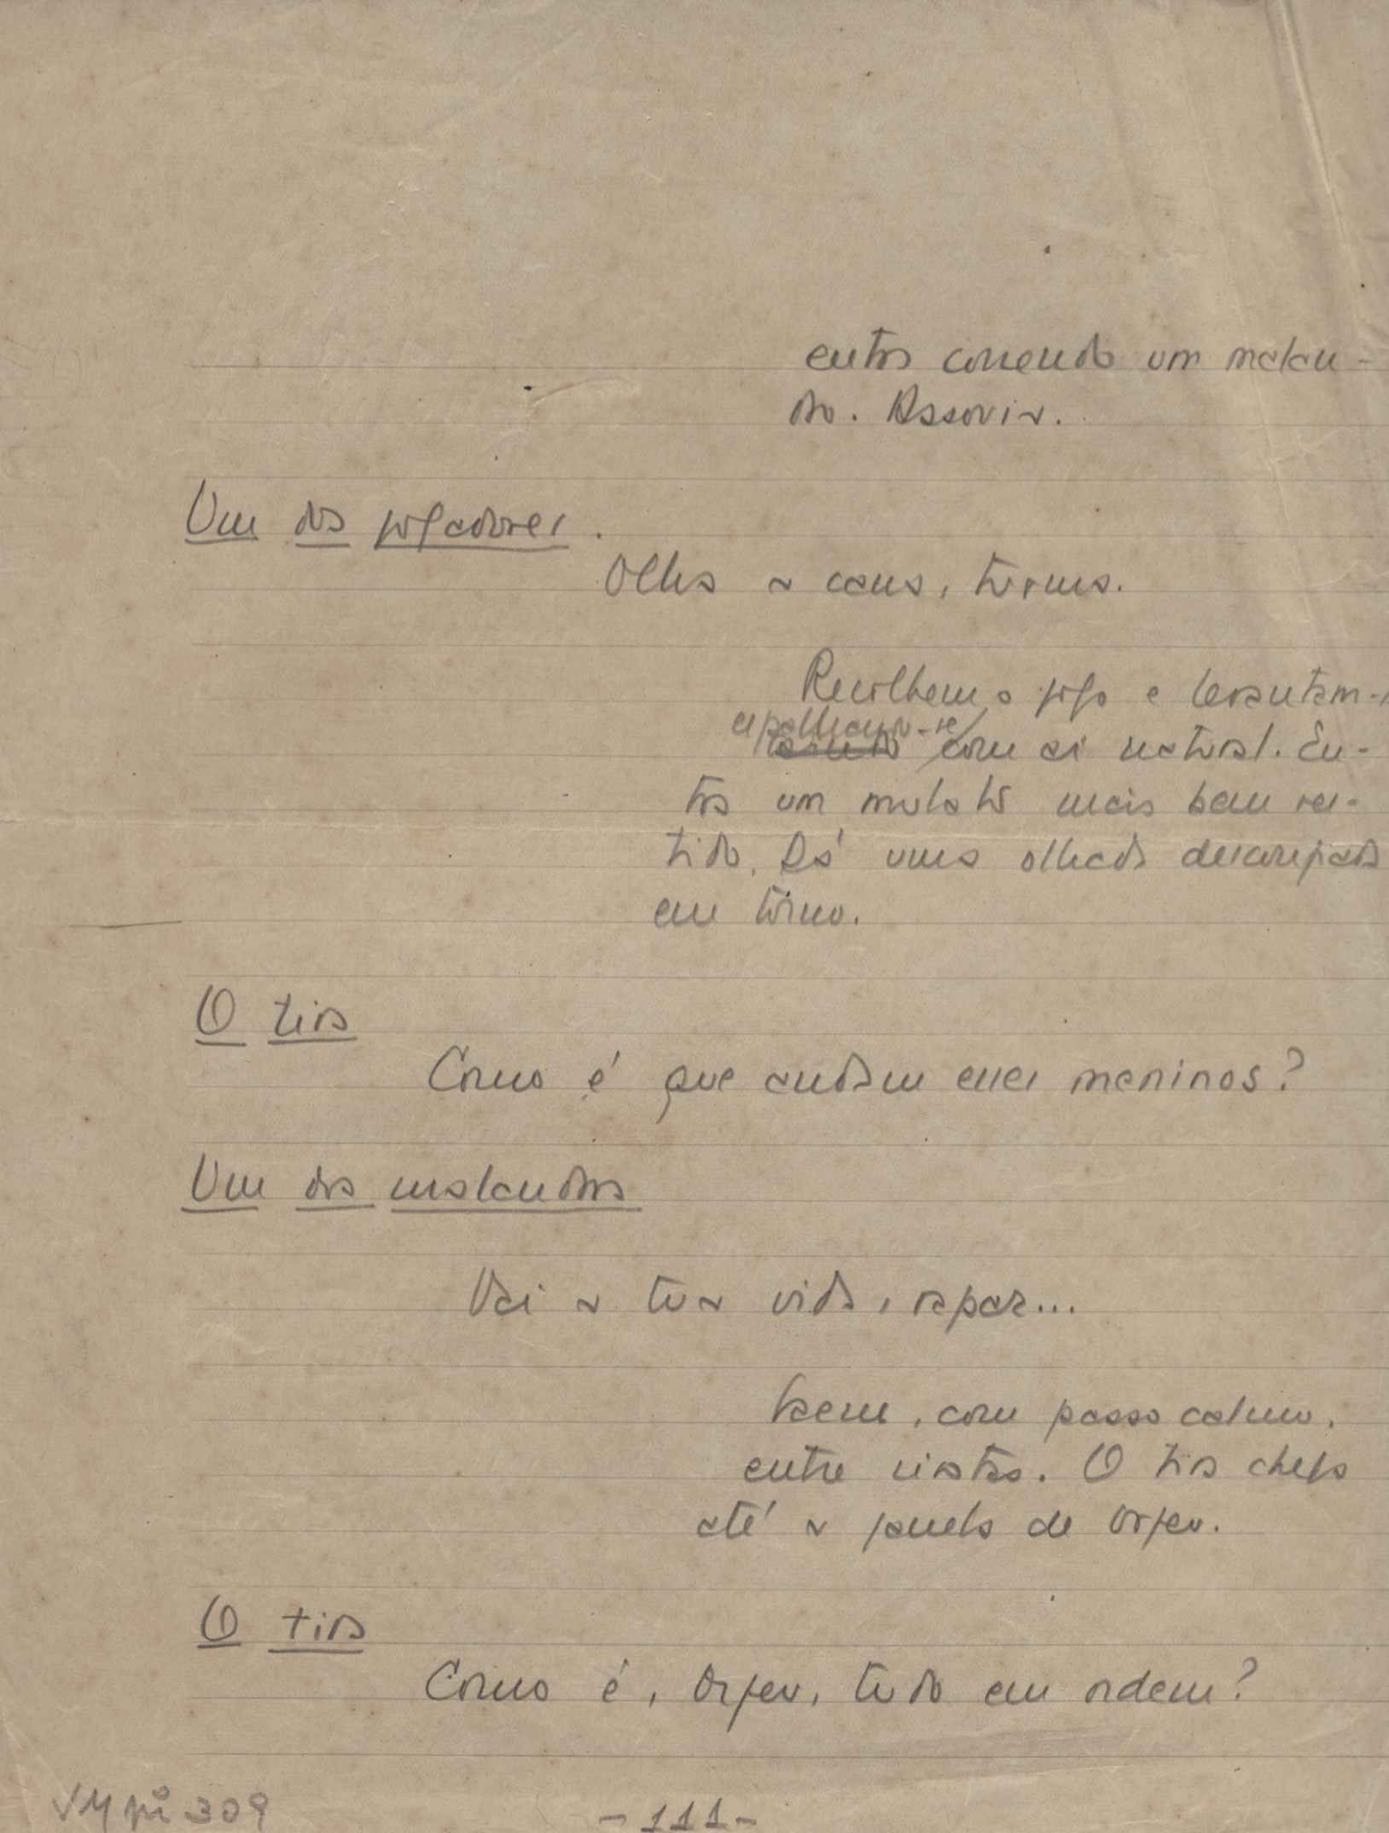 entra correndo um malan-
dro. Assovia.
Um dos jogadores.
Olha a cana, turma.
Recolhem o jogo e levantam-
espalham-se
com ar natural. En-
tra um mulato mais bem ves-
tido. Dá uma olhada
em tôrno.
O tira
Como é que andam esses meninos?
Um dos malandros
Vai a tua vida, rapaz...
Saem, com passo calmo,
entre risotas. O tira chega
até a janela de Orfeu.
O tira
Como é, Orfeu, tudo em ordem?
VM pi 309
-111-